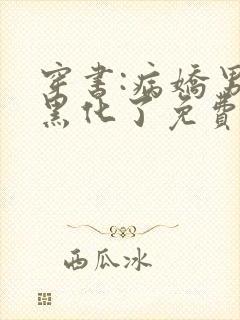 穿书:病娇男
黑化了免費
西瓜冰